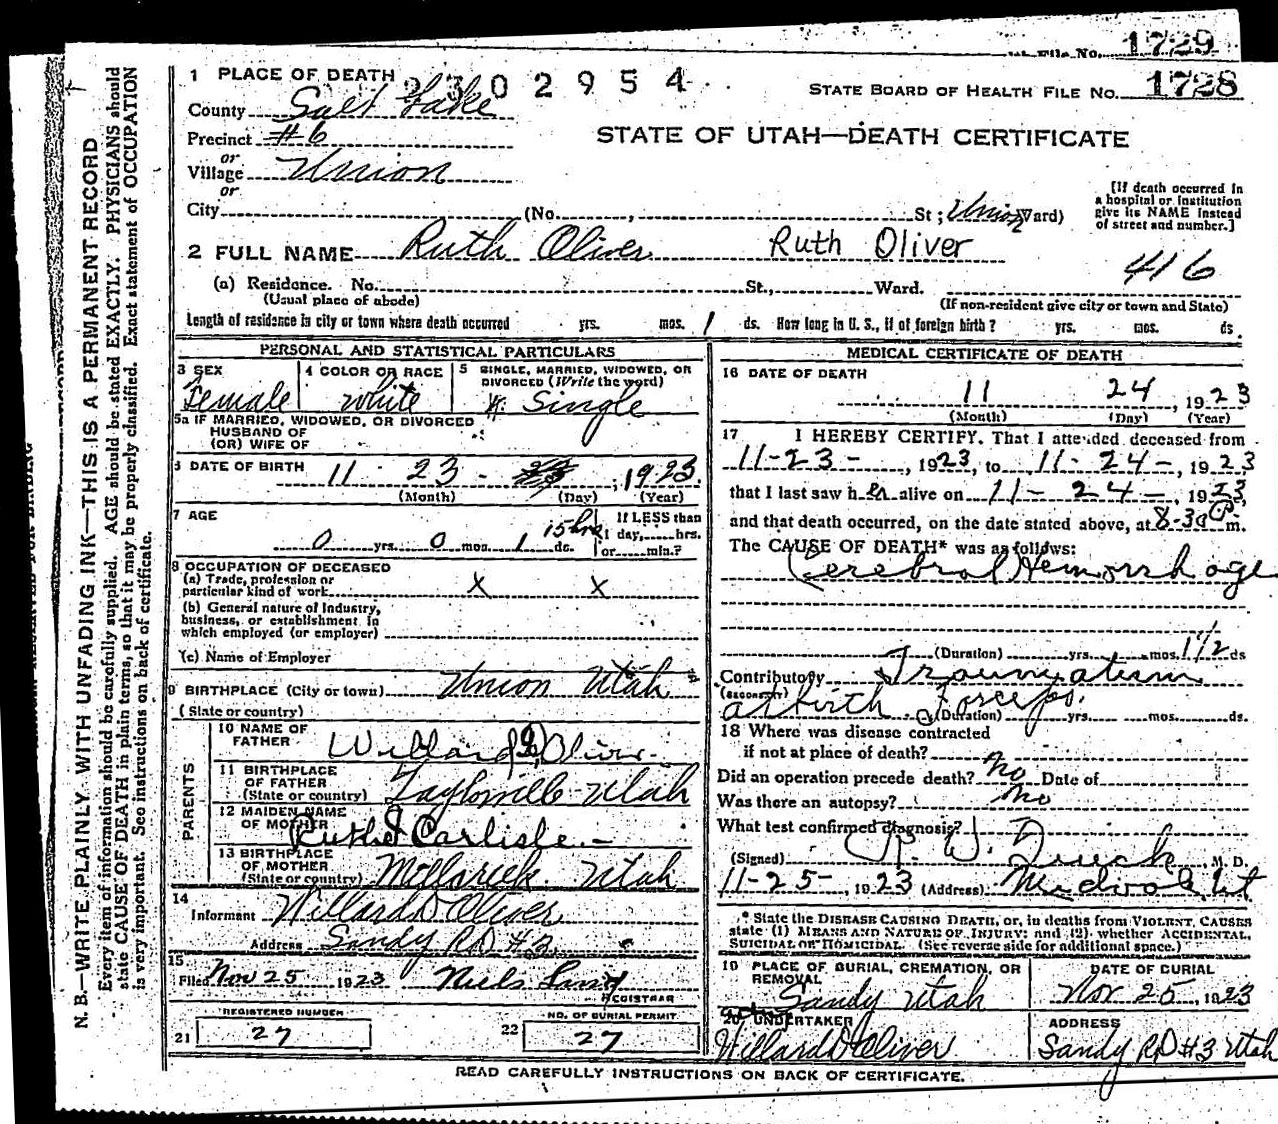 1729
State File No. 1728
2302954
STATE BOARD OF HEALTH FILE NO. 1728
STATE OF UTAH—DEATH CERTIFICATE
1 PLACE OF DEATH
County Salt Lake
Precinct #6
or
Village Union
or
City (No. , St; Union Ward)
[If death occurred in
a hospital or institution
give its NAME instead
of street and number.]
2 FULL NAME Ruth Oliver Ruth Oliver
416
(a) Residence. No. St., Ward.
(Usual place of abode) (If non-resident give city or town and State)
Length of residence in city or town where death occurred yrs. mos. 1 ds. How long in U. S., if of foreign birth? yrs. mos. ds.
PERSONAL AND STATISTICAL PARTICULARS
3 SEX
Female
4 COLOR OR RACE
white
5 SINGLE, MARRIED, WIDOWED, OR
DIVORCED (Write the word)
Single
5a IF MARRIED, WIDOWED, OR DIVORCED
HUSBAND OF
(OR) WIFE OF
6 DATE OF BIRTH 11 - 23 - , 1923
(Month) (Day) (Year)
7 AGE
0 yrs. 0 mos. 1 ds. 15 hrs
If LESS than
1 day, hrs.
or min.?
8 OCCUPATION OF DECEASED
(a) Trade, profession or
particular kind of work X X
(b) General nature of Industry,
business, or establishment in
which employed (or employer)
(c) Name of Employer
9 BIRTHPLACE (City or town) Union Utah
(State or country)
PARENTS
10 NAME OF
FATHER Willard D Oliver
11 BIRTHPLACE
OF FATHER
(State or country) Taylorsville Utah
12 MAIDEN NAME
OF MOTHER Carlisle
13 BIRTHPLACE
OF MOTHER
(State or country) Millcreek. Utah
14
Informant Willard D Oliver
Address Sandy RD #3
15
Filed Nov 25 1923 Niels Lind
REGISTRAR
REGISTERED NUMBER
21 27
NO. OF BURIAL PERMIT
22 27
MEDICAL CERTIFICATE OF DEATH
16 DATE OF DEATH
11 24 , 1923
(Month) (Day) (Year)
17 I HEREBY CERTIFY, That I attended deceased from
11-23- , 1923, to 11-24-, 1923
that I last saw her alive on 11-24-, 1923,
and that death occurred, on the date stated above, at 8-30 P m.
The CAUSE OF DEATH* was as follows:
Cerebral Hemorrhage
(Duration) yrs. mos. 1 1/2 ds
Contributory Traumatism
(SECONDARY) at birth Forceps.
(Duration) yrs. mos. ds.
18 Where was disease contracted
if not at place of death?
Did an operation precede death? No Date of
Was there an autopsy? No
What test confirmed diagnosis?
(Signed) M. D.
11-25-, 1923 (Address) Midvale Ut
* State the DISEASE CAUSING DEATH, or, in deaths from VIOLENT, CAUSES
state (1) MEANS AND NATURE OF INJURY; and (2) whether ACCIDENTAL,
SUICIDAL OR HOMICIDAL. (See reverse side for additional space.)
19 PLACE OF BURIAL, CREMATION, OR
REMOVAL
Sandy Utah
DATE OF BURIAL
Nov 25, 1923
20 UNDERTAKER
Willard D Oliver
ADDRESS
Sandy RD #3 Utah
READ CAREFULLY INSTRUCTIONS ON BACK OF CERTIFICATE.
N. B.—WRITE PLAINLY WITH UNFADING INK—THIS IS A PERMANENT RECORD
Every item of information should be carefully supplied. AGE should be stated EXACTLY. PHYSICIANS should
state CAUSE OF DEATH in plain terms, so that it may be properly classified. Exact statement of OCCUPATION
is very important. See instructions on back of certificate.